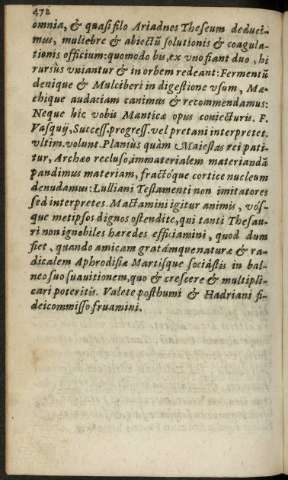 472
omnia, & quasi filo Ariadnes Theseum deduci-
mus, multebre & abiectũ solutionis & coagula-
tionis officium: quomodo hu, ex vno fiant duo, hi
rursus vniantur & in orbem redeant: Fermentũ
denique & Mulciberi in digestione vsum, Ma-
chique audaciam canimus & recommendamus:
Neque hic vobis Manticæ opus coniecturis. F.
Vasquij, Success. progress. vel pretani interpretes.
vltim. volunt. Planius quàm Maiestas rei pati-
tur, Archæo recluso immaterialem materiandã
pandimus materiam, fractoque cortice nucleum
denudamus: Lulliani Testamenti non imitatores
sed interpretes. Mactamini igitur animis, vos-
que metipsos dignos ostendite, qui tanti Thesau-
ri non ignobiles hæredes efficiamini, quod dum
fiet, quando amicam gratámque naturæ & ra-
dicalem Aphrodisiæ Martisque sociástis in bal-
neo suo suauitionem, quo & crescere & multipli-
cari poteritis. Valete posthumi & Hadriani fi-
deicommisso fruamini.